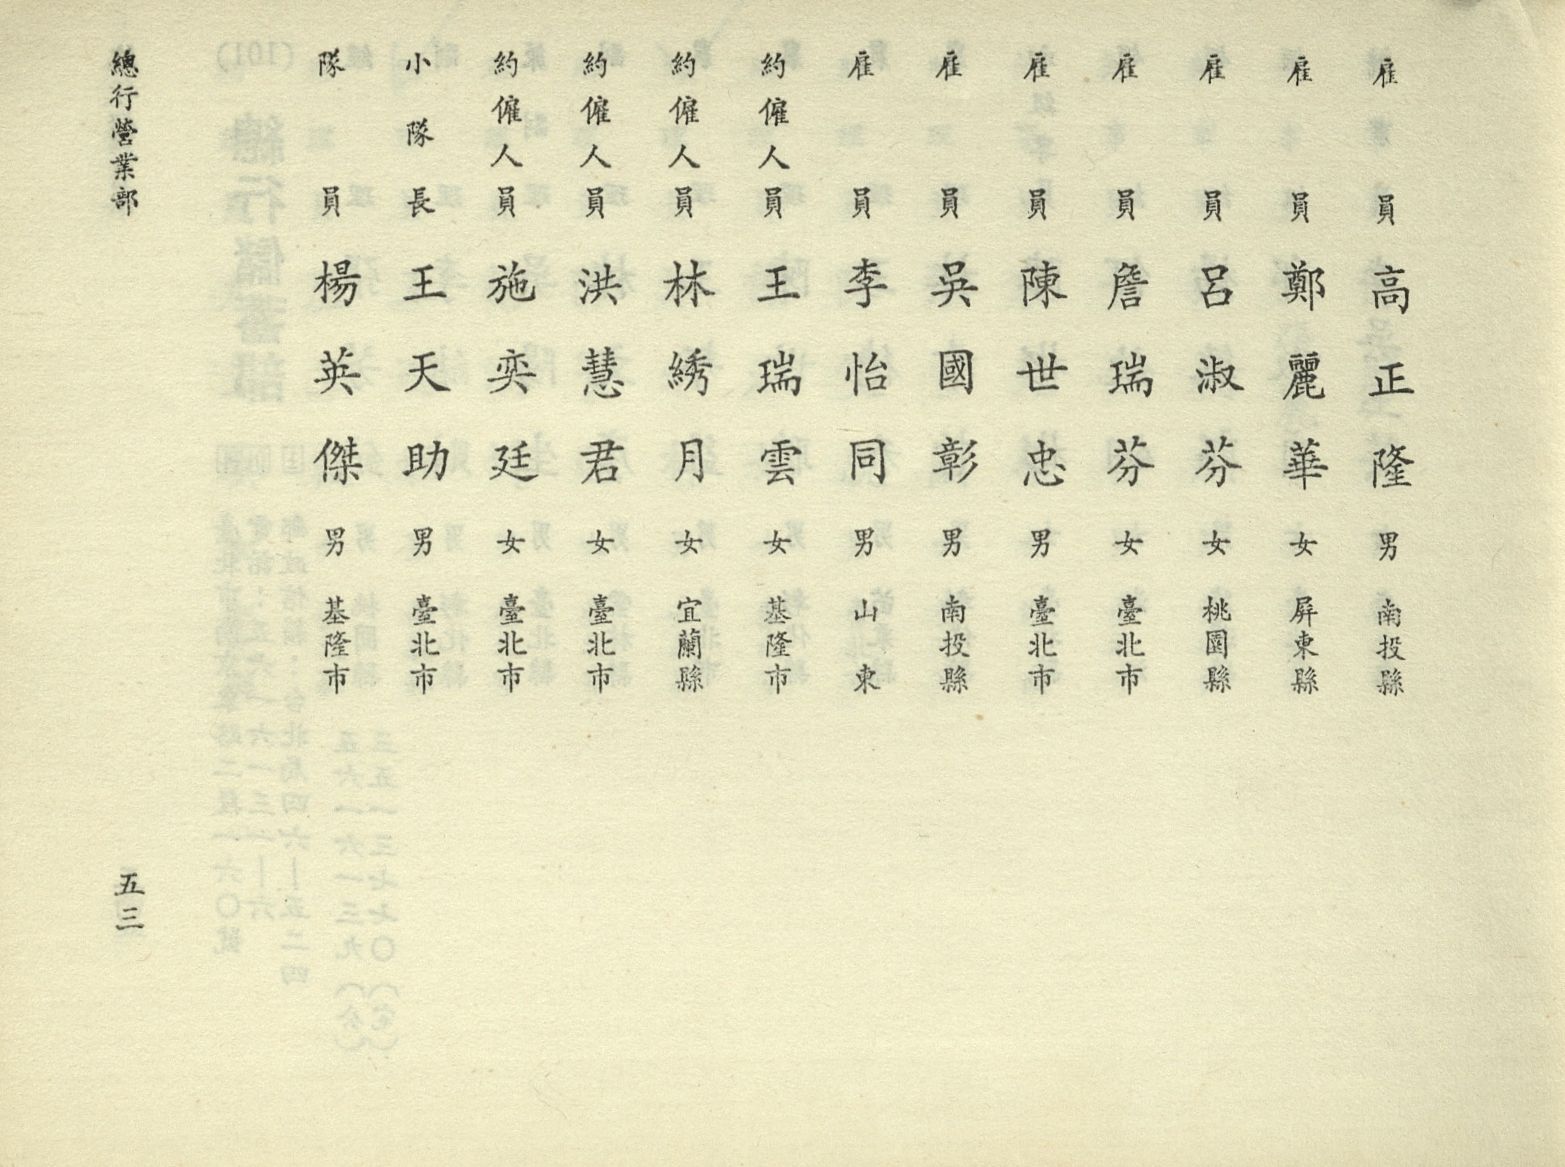 雇員 高正隆 男 南投縣
雇員 鄭麗華 女 屏東縣
雇員 呂淑芬 女 桃園縣
雇員 詹瑞芬 女 臺北市
雇員 陳世忠 男 臺北市
雇員 吳國彰 男 南投縣
雇員 李怡同 男 山東
約僱人員 王瑞雲 女 基隆市
約僱人員 林綉月 女 宜蘭縣
約僱人員 洪慧君 女 臺北市
約僱人員 施奕廷 女 臺北市
小隊長 王天助 男 臺北市
隊員 楊英傑 男 基隆市
總行營業部 五三